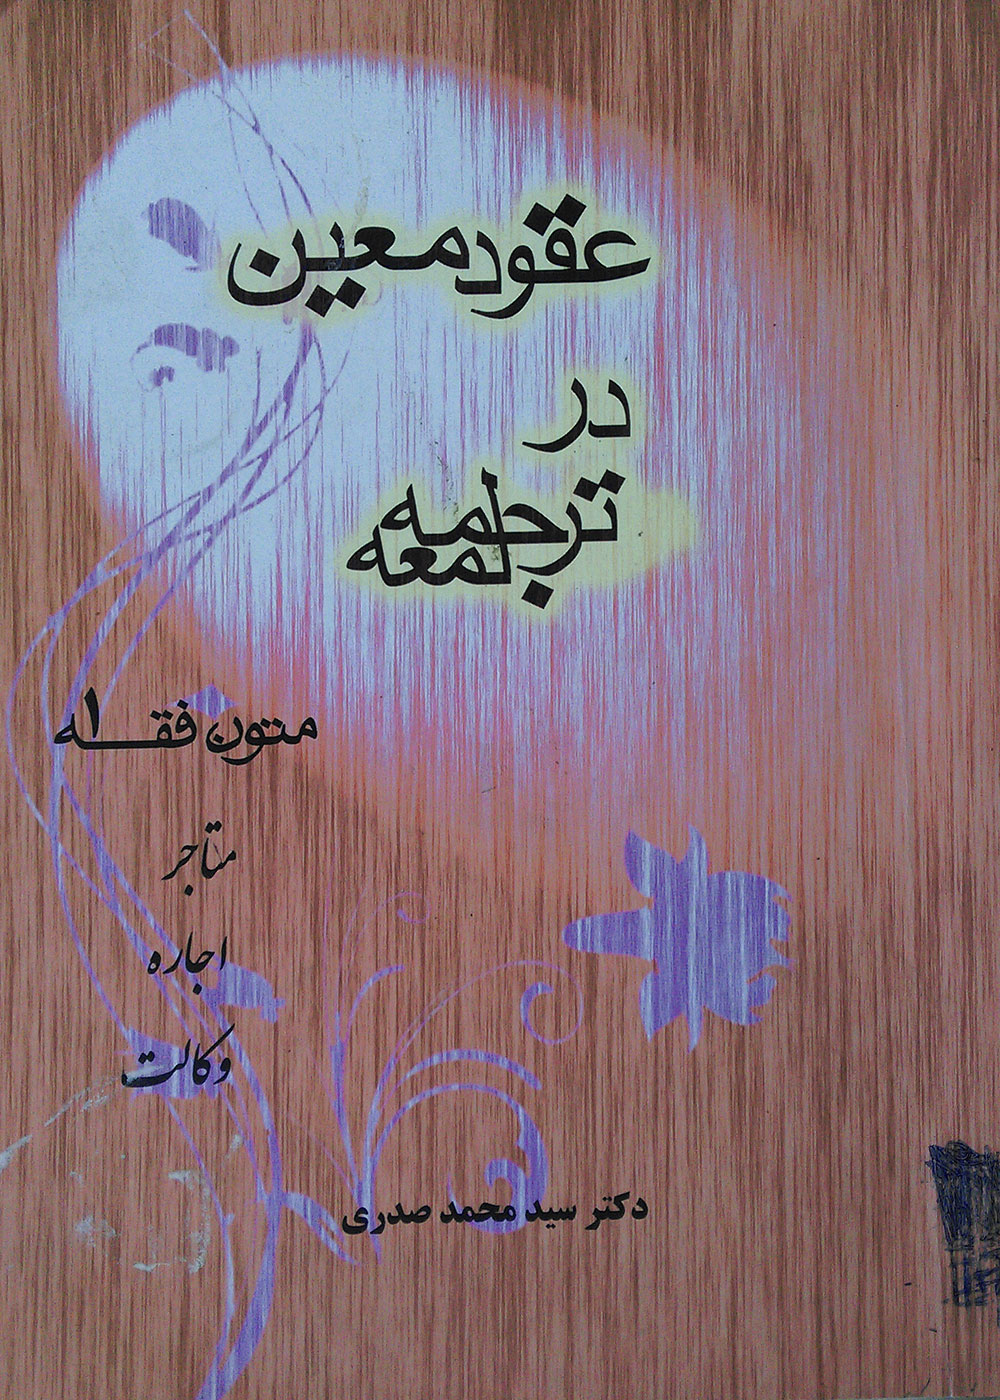 عقود معین
در
ترجمه
لمعه
متون فقه ۱
متاجر
اجاره
وکالت
دکتر سید محمد صدری